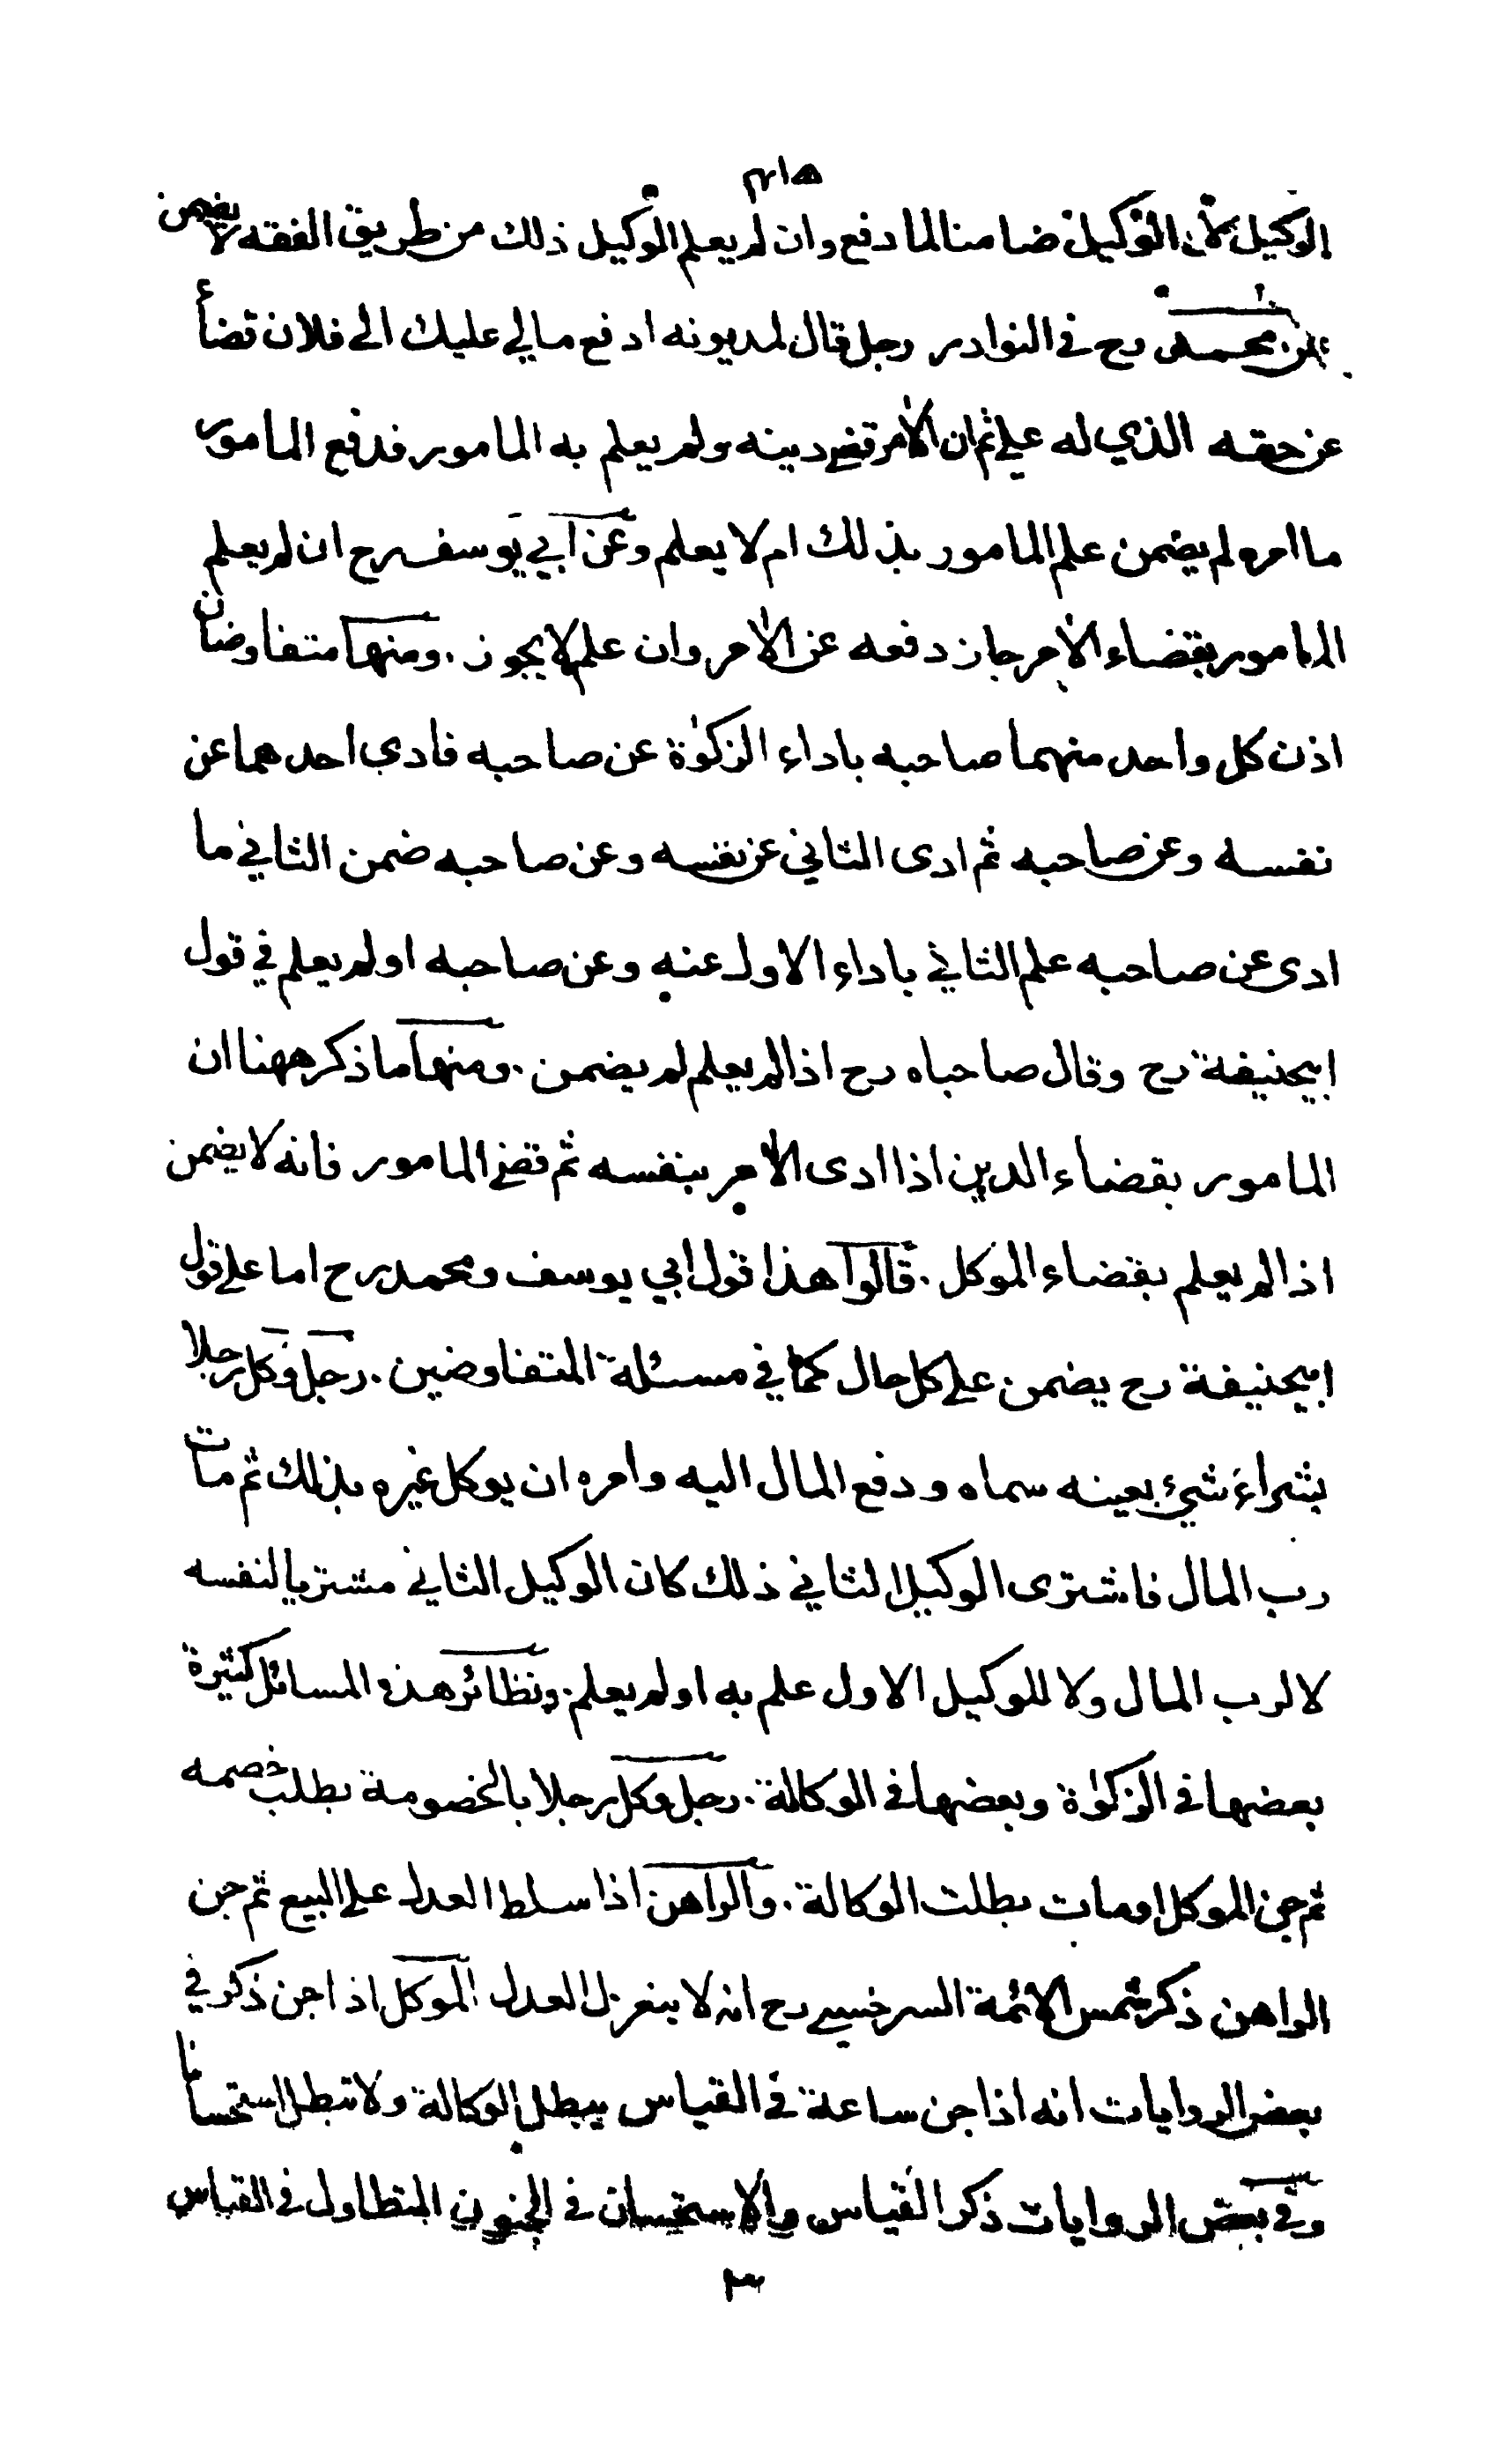 الوكيل لان الوكيل ضامنا لما دفع وان لم يعلم الوكيل ذلك من طريق الفقه لا يضمن
عن محمد رح في النوادر رجل قال لمديونه ادفع مالي عليك الى فلان قضأ
عن حقه الذي له علي ثم ان الآمر قضى دينه ولم يعلم به المامور فدفع المامور
ما امره لم يضمن علم المامور بذلك ام لا يعلم وعن ابي يوسف رح ان لم يعلم
المامور بقضاء الآمر جاز دفعه عن الآمر وان علم لا يجوز . ومنها متفاوضان
اذن كل واحد منهما صاحبه باداء الزكوٰة عن صاحبه فادى احدهما عن
نفسه وعن صاحبه ثم ادى الثاني عن نفسه وعن صاحبه ضمن الثاني ما
ادى عن صاحبه علم الثاني باداء الاول عنه وعن صاحبه او لم يعلم في قول
ابيحنيفة رح وقال صاحباه رح اذا لم يعلم لم يضمن . ومنها ما ذكر ههنا ان
المامور بقضاء الدين اذا ادى الآمر بنفسه ثم قضى المامور فانه لا يضمن
اذا لم يعلم بقضاء الموكل . قالوا هذا قول ابي يوسف ومحمد رح اما على قول
ابيحنيفة رح يضمن على كل حال كما في مسئلة المتفاوضين . رجل وكل رجلا
بشراء شيء بعينه سماه ودفع المال اليه وامره ان يوكل غيره بذلك ثم مات
رب المال فاشترى الوكيل الثاني ذلك كان الوكيل الثاني مشتريا لنفسه
لا لرب المال ولا للوكيل الاول علم به او لم يعلم . ونظائر هذه المسائل كثيرة
بعضها في الزكوٰة وبعضها في الوكالة . رجل وكل رجلا بالخصومة بطلب خصمه
ثم جن الموكل او مات بطلت الوكالة . والراهن اذا سلط العدل على البيع ثم جن
الراهن ذكر شمس الائمة السرخسي رح انه لا ينعزل العدل الموكل اذا جن ذكر في
بعض الروايات انه اذا جن ساعة في القياس يبطل الوكالة ولا تبطل استحسانا
وفي بعض الروايات ذكر القياس والاستحسان في الجنون المتطاول في القياس
٣